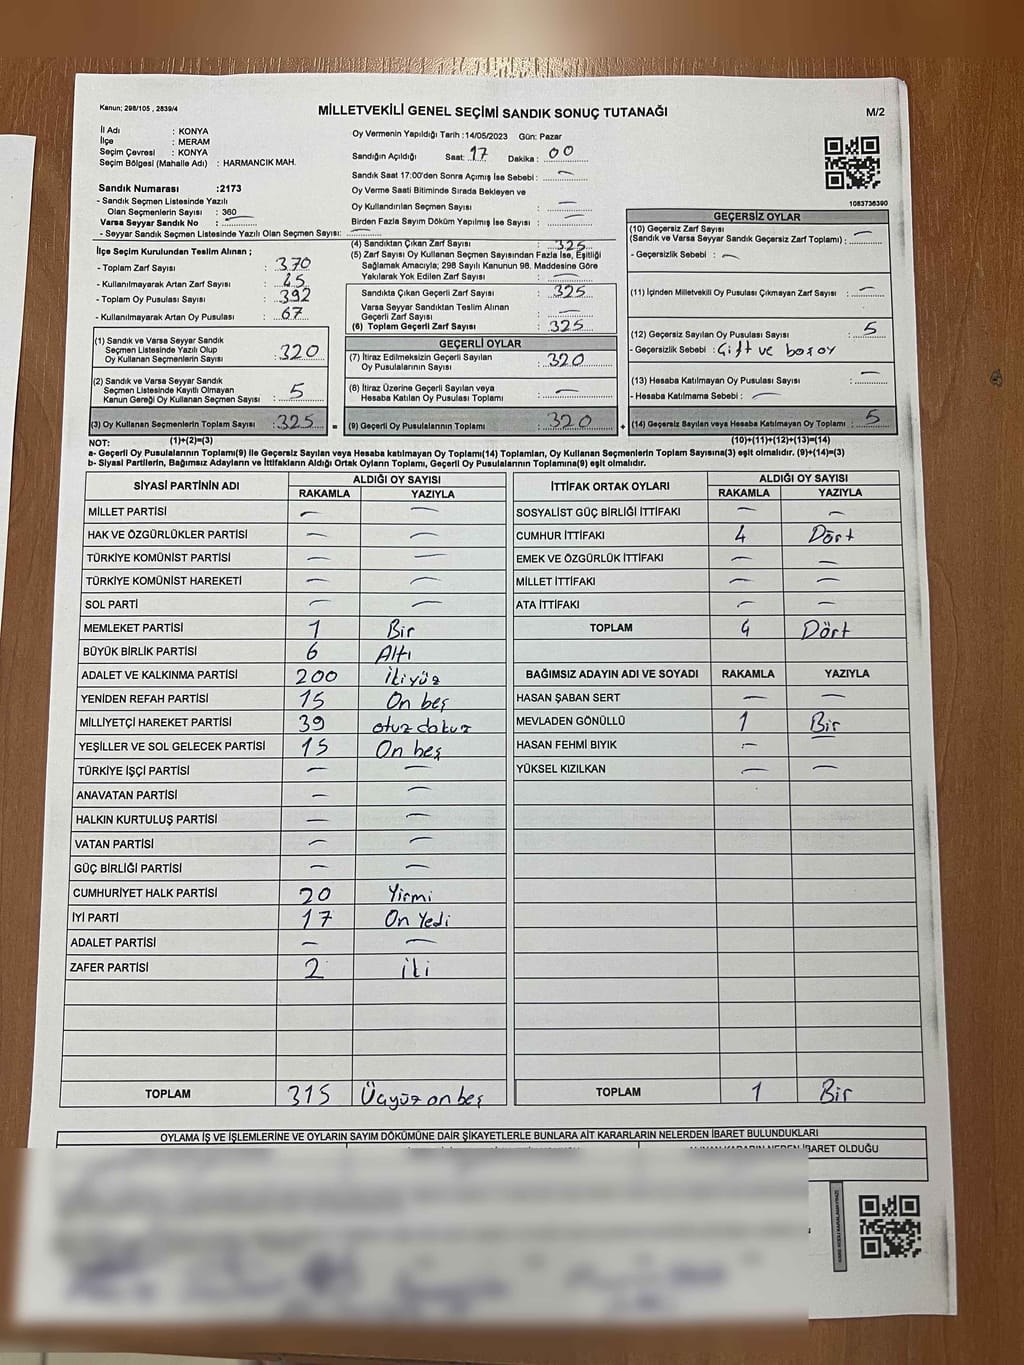 Kanun; 298/105 , 2839/4
MİLLETVEKİLİ GENEL SEÇİMİ SANDIK SONUÇ TUTANAĞI
M/2
İl Adı : KONYA
İlçe : MERAM
Seçim Çevresi : KONYA
Seçim Bölgesi (Mahalle Adı) : HARMANCIK MAH.
Sandık Numarası :2173
- Sandık Seçmen Listesinde Yazılı
Olan Seçmenlerin Sayısı : 360
Varsa Seyyar Sandık No : —
- Seyyar Sandık Seçmen Listesinde Yazılı Olan Seçmen Sayısı: —
Oy Vermenin Yapıldığı Tarih :14/05/2023 Gün: Pazar
Sandığın Açıldığı Saat: 17 Dakika : 00
Sandık Saat 17:00'den Sonra Açımış İse Sebebi : —
Oy Verme Saati Bitiminde Sırada Bekleyen ve
Oy Kullandırılan Seçmen Sayısı : —
Birden Fazla Sayım Döküm Yapılmış İse Sayısı : —
1083736390
İlçe Seçim Kurulundan Teslim Alınan ;
- Toplam Zarf Sayısı : 370
- Kullanılmayarak Artan Zarf Sayısı : 45
- Toplam Oy Pusulası Sayısı : 392
- Kullanılmayarak Artan Oy Pusulası : 67
(1) Sandık ve Varsa Seyyar Sandık
Seçmen Listesinde Yazılı Olup
Oy Kullanan Seçmenlerin Sayısı : 320
(2) Sandık ve Varsa Seyyar Sandık
Seçmen Listesinde Kayıtlı Olmayan
Kanun Gereği Oy Kullanan Seçmen Sayısı : 5
(3) Oy Kullanan Seçmenlerin Toplam Sayısı : 325 =
(4) Sandıktan Çıkan Zarf Sayısı : 325
(5) Zarf Sayısı Oy Kullanan Seçmen Sayısından Fazla İse, Eşitliği
Sağlamak Amacıyla; 298 Sayılı Kanunun 98. Maddesine Göre
Yakılarak Yok Edilen Zarf Sayısı : —
Sandıkta Çıkan Geçerli Zarf Sayısı : 325
Varsa Seyyar Sandıktan Teslim Alınan
Geçerli Zarf Sayısı : —
(6) Toplam Geçerli Zarf Sayısı : 325
GEÇERLİ OYLAR
(7) İtiraz Edilmeksizin Geçerli Sayılan
Oy Pusulalarının Sayısı : 320
(8) İtiraz Üzerine Geçerli Sayılan veya
Hesaba Katılan Oy Pusulası Toplamı : —
(9) Geçerli Oy Pusulalarının Toplamı : 320 +
GEÇERSİZ OYLAR
(10) Geçersiz Zarf Sayısı
(Sandık ve Varsa Seyyar Sandık Geçersiz Zarf Toplamı) : —
- Geçersizlik Sebebi : —
(11) İçinden Milletvekili Oy Pusulası Çıkmayan Zarf Sayısı : —
(12) Geçersiz Sayılan Oy Pusulası Sayısı : 5
- Geçersizlik Sebebi : Çift ve boş oy
(13) Hesaba Katılmayan Oy Pusulası Sayısı : —
- Hesaba Katılmama Sebebi : —
(14) Geçersiz Sayılan veya Hesaba Katılmayan Oy Toplamı : 5
NOT: (1)+(2)=(3) (10)+(11)+(12)+(13)=(14)
a- Geçerli Oy Pusulalarının Toplamı(9) ile Geçersiz Sayılan veya Hesaba katılmayan Oy Toplamı(14) Toplamları, Oy Kullanan Seçmenlerin Toplam Sayısına(3) eşit olmalıdır. (9)+(14)=(3)
b- Siyasi Partilerin, Bağımsız Adayların ve İttifakların Aldığı Ortak Oyların Toplamı, Geçerli Oy Pusulalarının Toplamına(9) eşit olmalıdır.
SİYASİ PARTİNİN ADI ALDIĞI OY SAYISI
RAKAMLA YAZIYLA
MİLLET PARTİSİ — —
HAK VE ÖZGÜRLÜKLER PARTİSİ — —
TÜRKİYE KOMÜNİST PARTİSİ — —
TÜRKİYE KOMÜNİST HAREKETİ — —
SOL PARTİ — —
MEMLEKET PARTİSİ 1 Bir
BÜYÜK BİRLİK PARTİSİ 6 Altı
ADALET VE KALKINMA PARTİSİ 200 İkiyüz
YENİDEN REFAH PARTİSİ 15 On beş
MİLLİYETÇİ HAREKET PARTİSİ 39 otuz dokuz
YEŞİLLER VE SOL GELECEK PARTİSİ 15 On beş
TÜRKİYE İŞÇİ PARTİSİ — —
ANAVATAN PARTİSİ — —
HALKIN KURTULUŞ PARTİSİ — —
VATAN PARTİSİ — —
GÜÇ BİRLİĞİ PARTİSİ — —
CUMHURİYET HALK PARTİSİ 20 Yirmi
İYİ PARTİ 17 On Yedi
ADALET PARTİSİ — —
ZAFER PARTİSİ 2 İki
TOPLAM 315 Üçyüz on beş
İTTİFAK ORTAK OYLARI ALDIĞI OY SAYISI
RAKAMLA YAZIYLA
SOSYALİST GÜÇ BİRLİĞİ İTTİFAKI — —
CUMHUR İTTİFAKI 4 Dört
EMEK VE ÖZGÜRLÜK İTTİFAKI — —
MİLLET İTTİFAKI — —
ATA İTTİFAKI — —
TOPLAM 4 Dört
BAĞIMSIZ ADAYIN ADI VE SOYADI RAKAMLA YAZIYLA
HASAN ŞABAN SERT — —
MEVLADEN GÖNÜLLÜ 1 Bir
HASAN FEHMİ BIYIK —
YÜKSEL KIZILKAN — —
TOPLAM 1 Bir
OYLAMA İŞ VE İŞLEMLERİNE VE OYLARIN SAYIM DÖKÜMÜNE DAİR ŞİKAYETLERLE BUNLARA AİT KARARLARIN NELERDEN İBARET BULUNDUKLARI
İBARET OLDUĞU